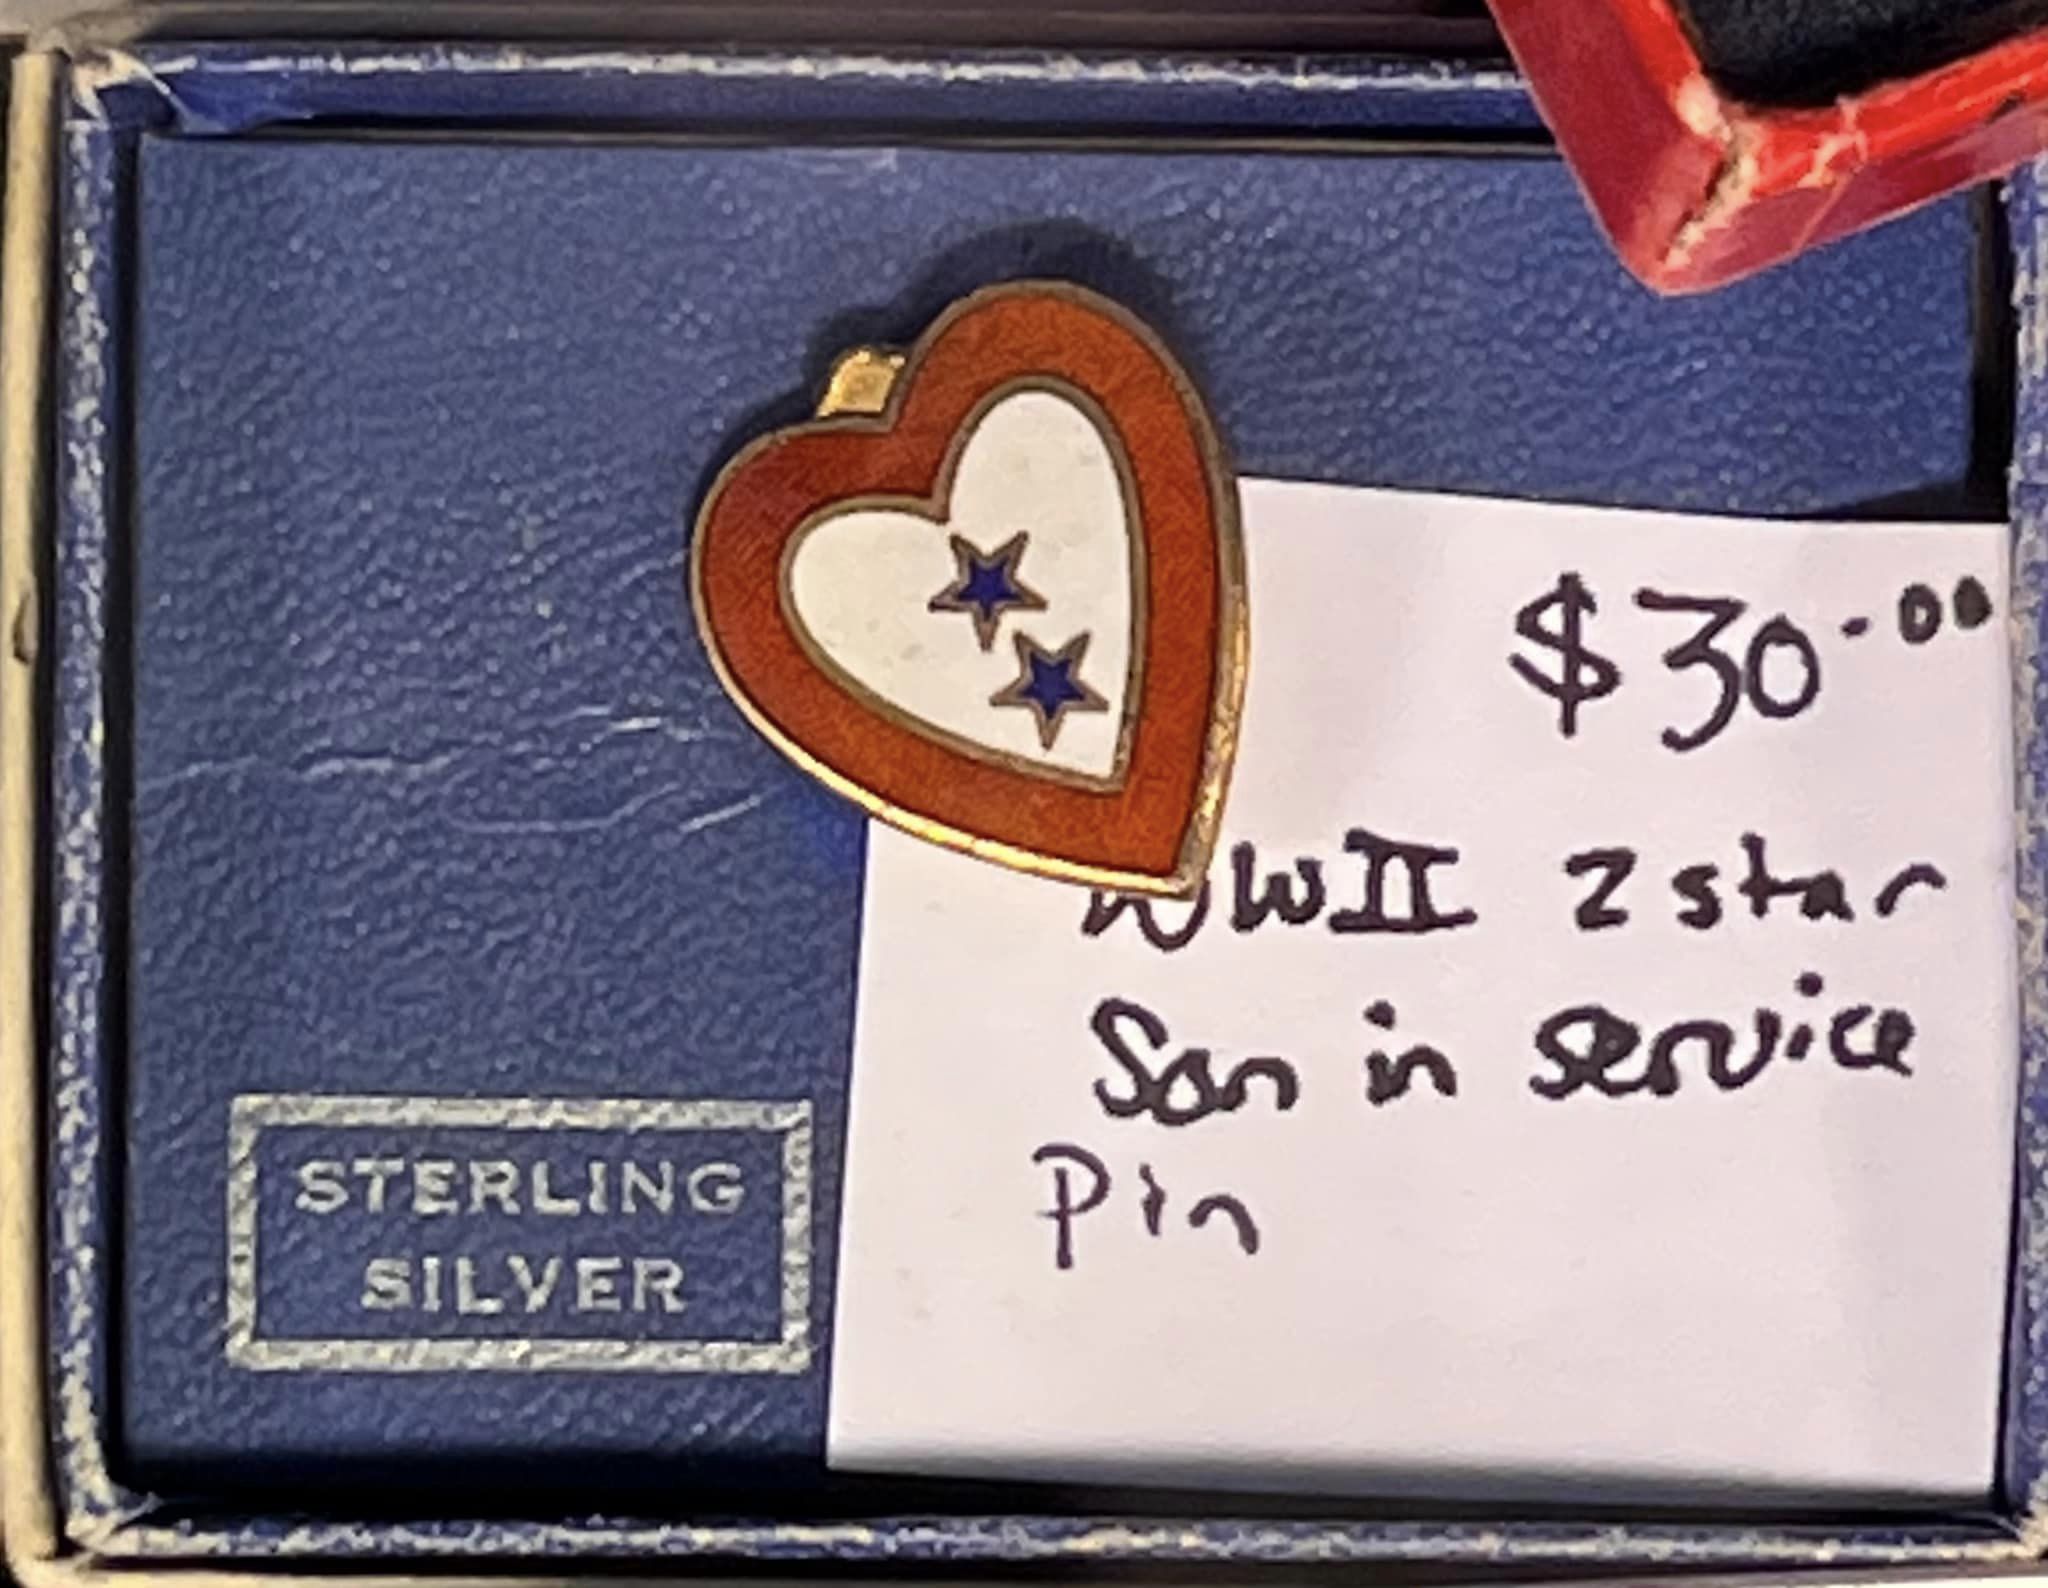 $30.00
WWII 2 star
Son in service
Pin
STERLING
SILVER